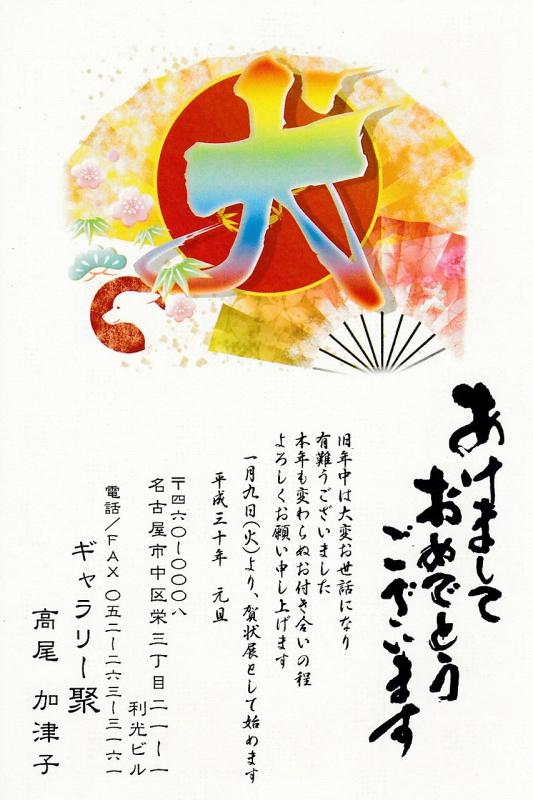 犬
あけまして
おめでとう
ございます
旧年中は大変お世話になり
有難うございました
本年も変わらぬお付き合いの程
よろしくお願い申し上げます
一月九日(火)より、賀状展として始めます
平成三十年 元旦
〒四六〇-〇〇〇八
名古屋市中区栄三丁目二一-一
利光ビル
電話/FAX 〇五二-二六三-三一六一
ギャラリー聚
高尾 加津子